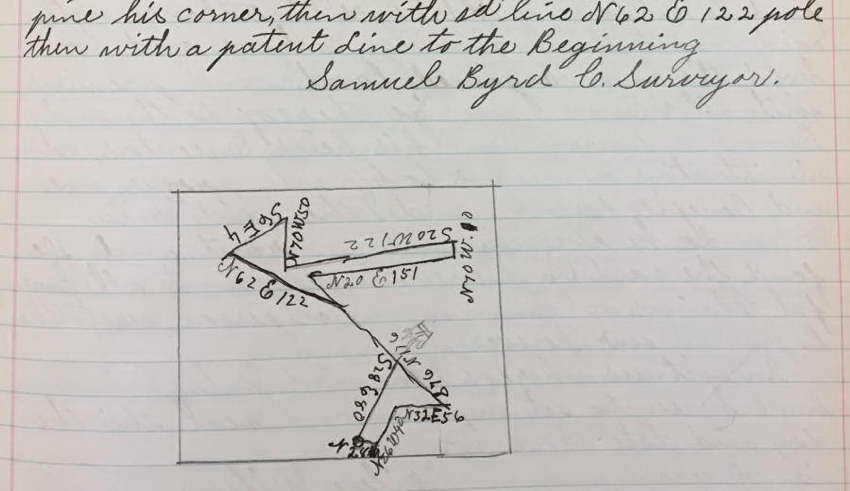 pine his corner, then with sd line N 62 E 122 pole
then with a patent Line to the Beginning
Samuel Byrd C. Surveyor.
S6E4
N70W50
S20W122
N70W.10
N62E122
N20 E151
S28E60
N32E56